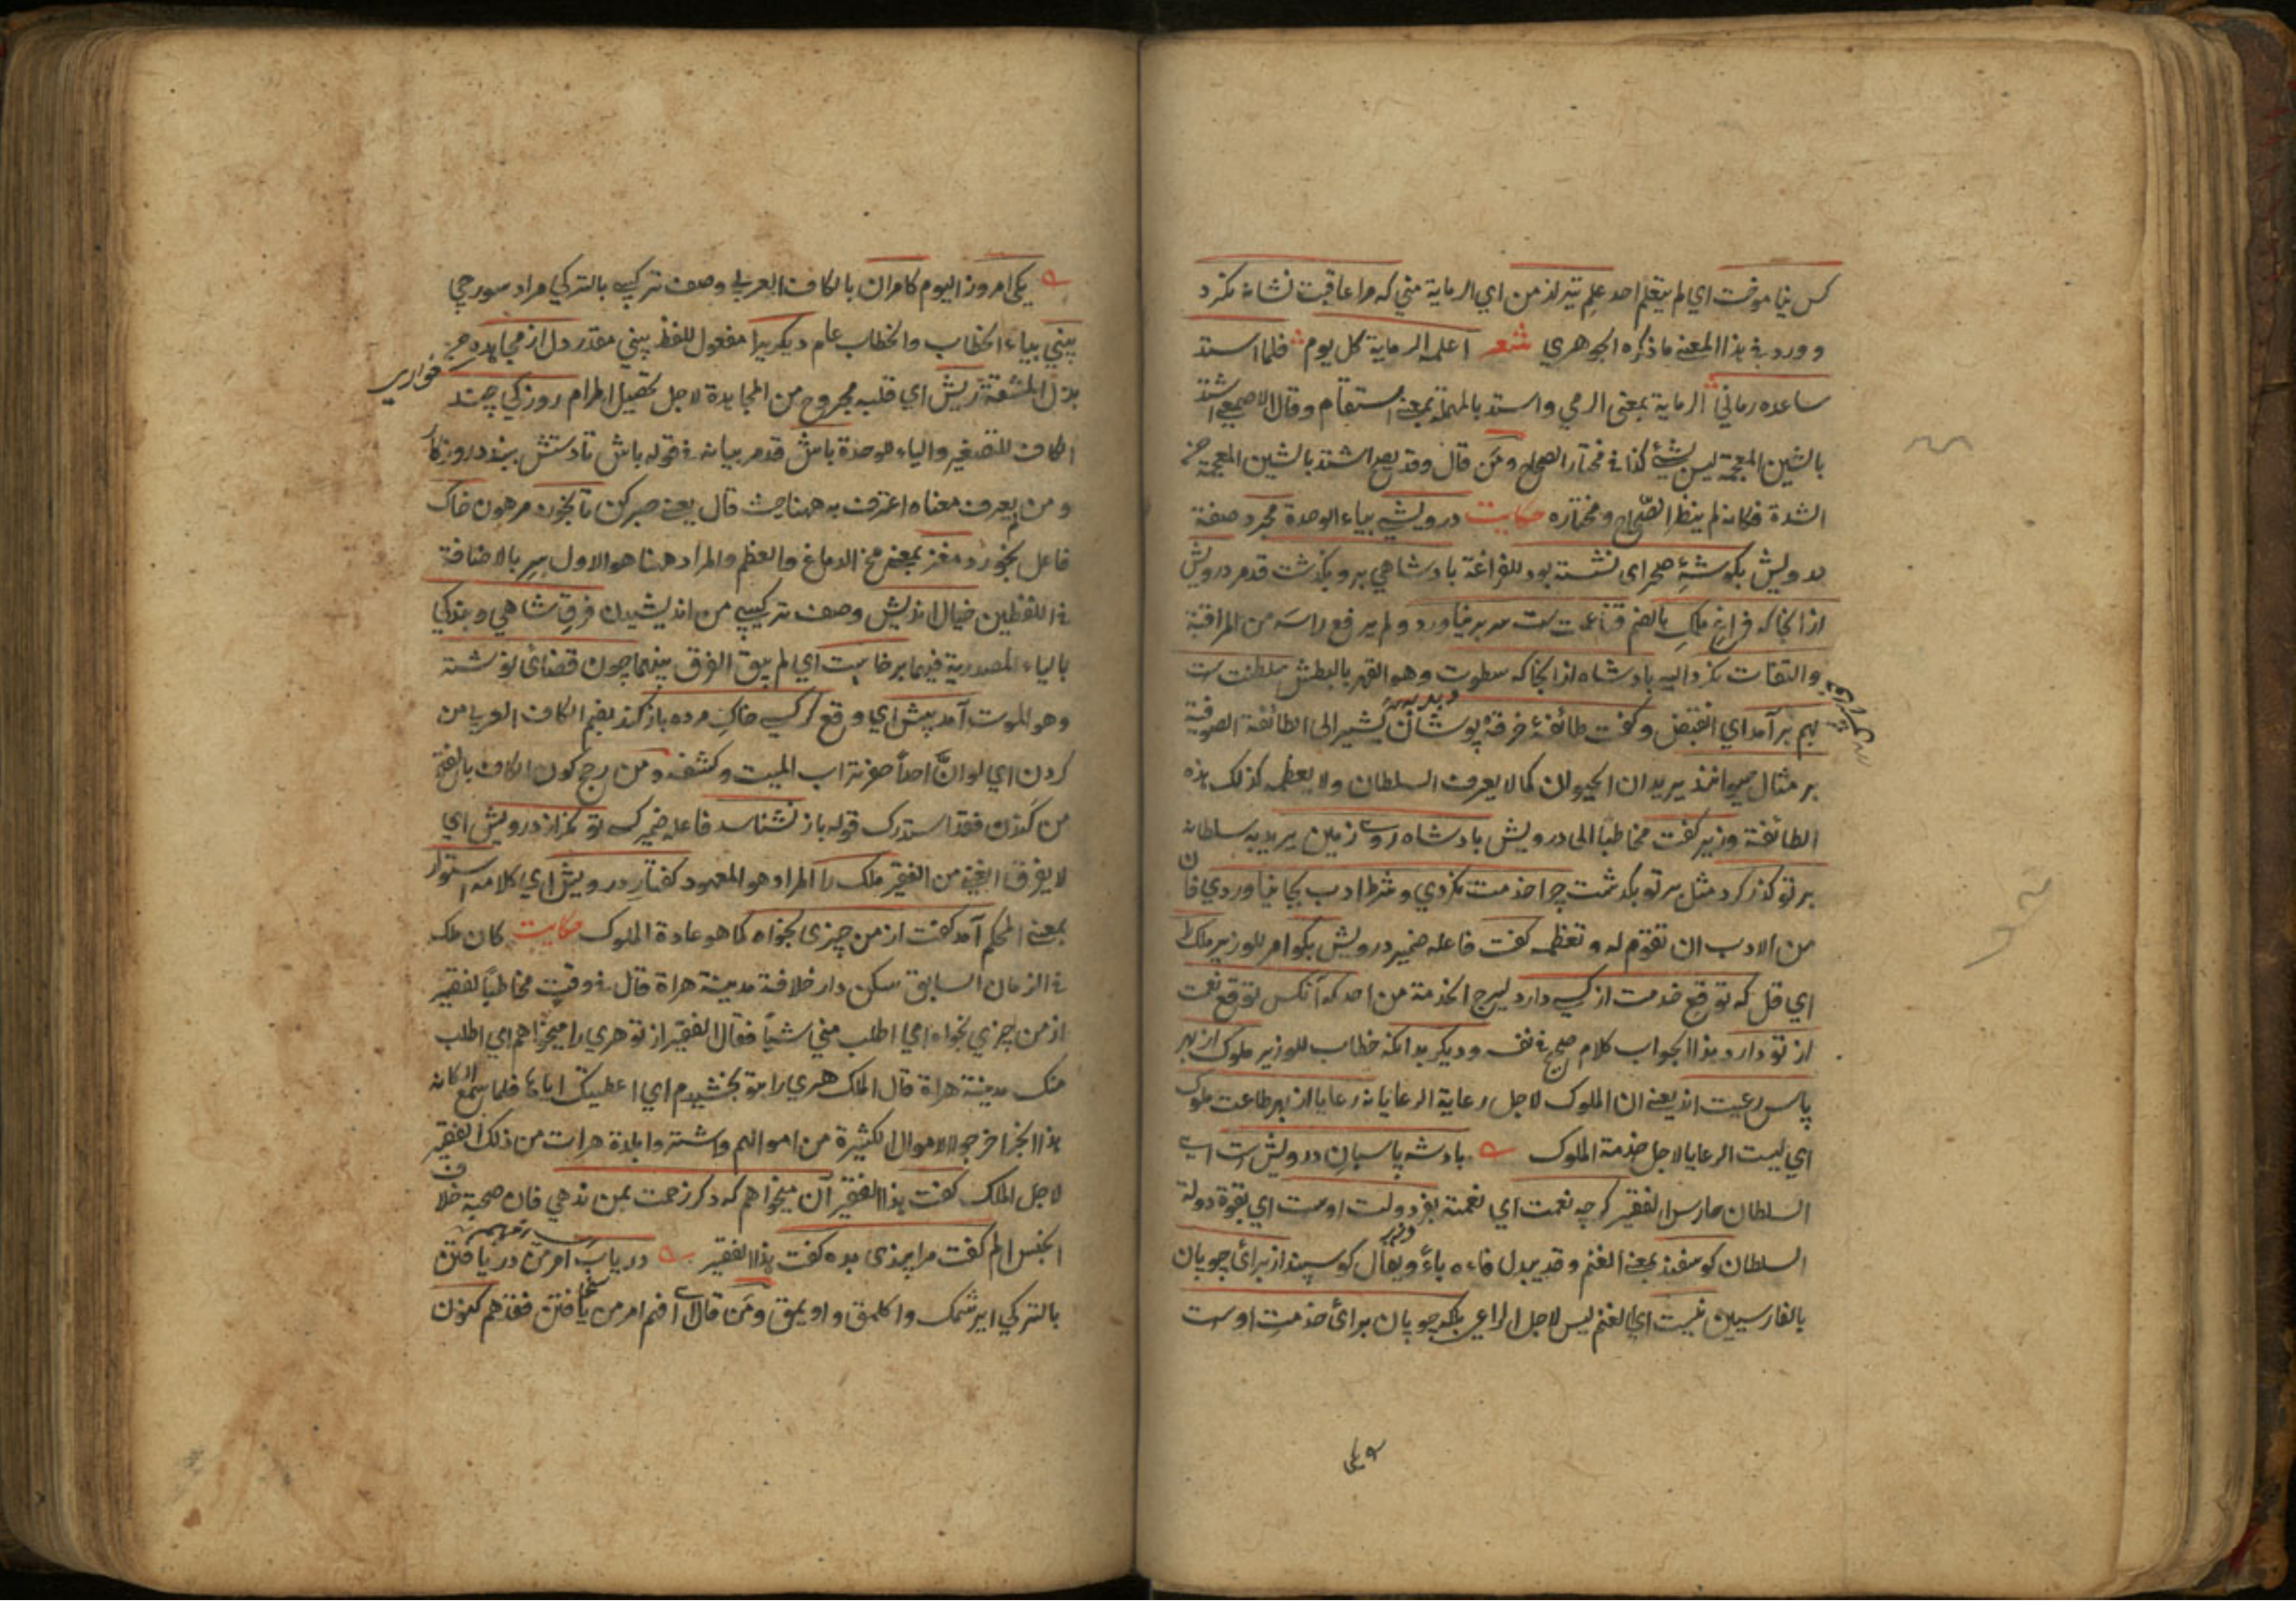 کس نیاموخت اي لم يتعلم احد علم تیر از من اي الرماية مني که مرا عاقبت نشانه نکرد
وورد في هذا المعنى ما ذكره الجوهري شعر اعلمه الرماية كل يوم فلما استد
ساعده رماني الرماية بمعنى الرمي واستد بالمهملة بمعنى استقام وقال الاصمعي اشتد
بالشين المعجمة ليس بشئ كذا في مختار الصحاح ومن قال وقد يصح اشتد بالشين المعجمة من
الشدة فكانه لم ينظر الصحاح ومختاره حكايت درویشي بياء الوحدة مجرد صفة
درویش بکوشهٔ صحرای نشسته بود للفراغة بادشاهي برو بکذشت قدم درویش
از انجا که فراغ ملک بالضم قناعت ست سر بر نیاورد ولم يرفع راسه من المراقبة
والتفات نکرد اليه بادشاه از انجا که سطوت وهو القهر بالبطش سلطنت ست
بهم بر آمد اي انقبض وکفت طائفهٔ خرقه پوشان يشير الى الطائفة الصوفية
بر مثال حیوانند يريد ان الحيوان كما لا يعرف السلطان ولا يعظمه كذلك هذه
الطائفة وزیر کفت مخاطبا الى درویش بادشاه روی زمین يريد به سلطانه
بر تو کذر کرد مثل بر تو بکذشت چرا خدمت نکردي وشرط ادب بجا نیاوردي فان
من الادب ان تقوم له وتعظمه کفت فاعله ضمير درویش بکو امر للوزير ملک را
اي قل که توقع خدمت از کسي دارد ليرج الخدمة من احد که آنکس توقع نعمت
از تو دارد هذا الجواب كلام صحيح في نفسه ودیکر بدانکه خطاب للوزير ملوک از بهر
پاس رعیت اند يعني ان الملوك لاجل رعاية الرعايا نه رعایا از بهر طاعت ملوک
اي ليست الرعايا لاجل خدمة الملوك بادشه پاسبان درویش است اي
السلطان حارس الفقير کرچه نعمت اي نعمته بفر دولت اوست اي بقوة دولة
السلطان کوسفند بمعنى الغنم وقد يبدل فاءه باء ويقال کوسپند از برای چوپان
بالفارسيين نیست اي الغنم ليس لاجل الراعي بلکه چوپان برای خدمت اوست
یکی امروز اليوم کامران بالكاف العربي وصف تركيبي بالتركي مراد سورجي
بيني بياء الخطاب والخطاب عام دیکریرا مفعول للفظ بيني مقدر دل از مجاهده
بذل المشقة ریش اي قلبه مجروح من المجاهدة لاجل تحصيل المرام روزکي چند
الكاف للتصغير والياء للوحدة باش قد مر بيانه في قوله باش تا دستش ببندد روزکار
ومن لم يعرف معناه اعترف به ههنا حيث قال يعني صبر کن تا بخورد مرهون خاک
فاعل بخورد مغز بمعنى مخ الدماغ والعظم والمراد ههنا هو الاول سر بالاضافة
في اللفظين خیال اندیش وصف تركيبي من اندیشیدن فرق شاهي وبندکي
بالياء المصدرية فيهما برخاست اي لم يبق الفرق بينهما چون قضای نوشته
وهو الموت آمد پیش اي وقع کر کسي خاک مرده باز کند بضم الكاف العربي من
کردن اي لو ان احدا حفر تراب الميت وكشفه ومن رجح كون الكاف بالفتح
من کندن فقد استدرك قوله باز نشناسد فاعله ضمير کسي توانکر از درویش اي
لا يفرق الغني من الفقير ملک را المراد هو المعهود کفتار درویش اي كلامه استوار
بمعنى المحكم آمد کفت از من چیزی بخواه كما هو عادة الملوك حكايت كان ملك
في الزمان السابق سكن دار خلافة مدينة هراة قال في وقت مخاطبا لفقير
از من چیزي بخواه اي اطلب مني شيئا فقال الفقير از تو هري را میخواهم اي اطلب
منك مدينة هراة قال الملك هري را بتو بخشیدم اي اعطيتك اياها فلما سمع الكانه
هذا الخبر اخرجوا الاموال الكثيرة من اموالهم واشتروا بلدة هرات من ذلك الفقير
لاجل الملك کفت هذا الفقير آن میخواهم که دکر زحمت بمن ندهي فان صحبة خلاف
الجنس الم کفت مرا پندی بده کفت هذا الفقير دریاب امر من دریافتن
بالتركي ايرشمك واكلمق واويمق ومن قال افهم امر من یافتن فقد هم كون